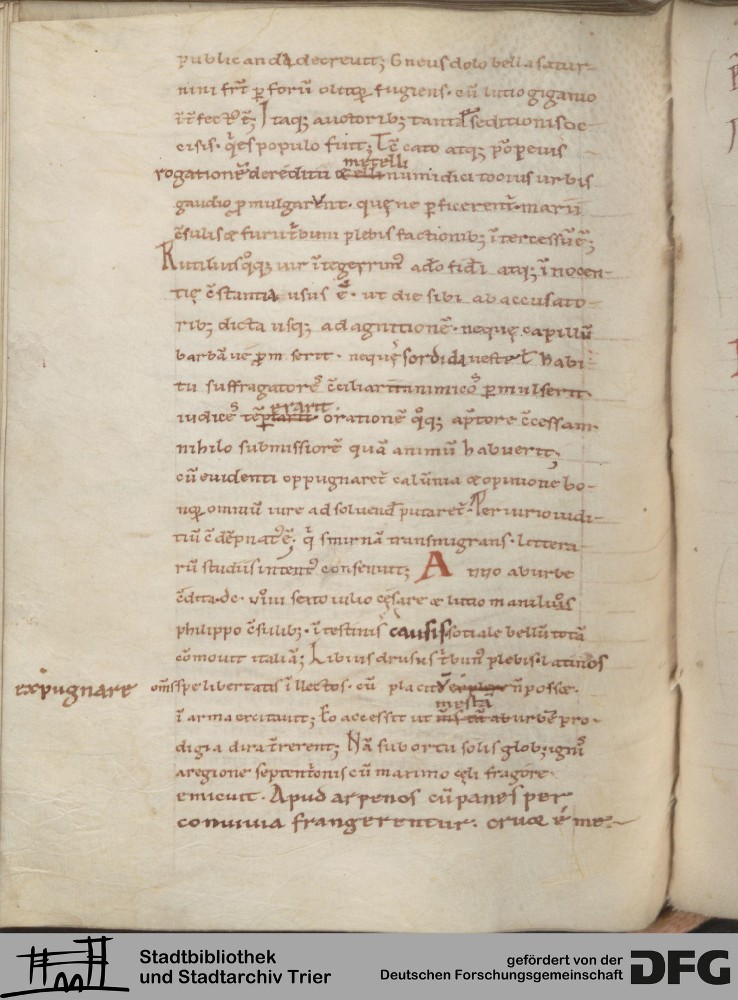 publicanda decreuit; Gneus dolo bella satur-
nini frī ꝑ forū olitoꝝ fugiens · cū lucio giganio
ītfect᷒ ē; Itaq; auctorib; tantę seditionis oc-
cisis · q̄es populo fuit; Tc̄ cato atq; pōpeius
rogationē de reditu metelli numidici tocius urbis
gaudio ꝓmulgarunt · quę ne ꝑficerent᷑ marii
c̄sulis & furii t̄buni plebis factionib; ītercessū ē;
Rutilius q̊q; uir ītegerrim᷒ adeo fidei atq; īnocen-
tię c̄stantia usus ē · ut die sibi ab accusato-
rib; dicta usq; ad agnitionē · neque capillū
barbāue ꝓmiserit · neque sordida ueste ł habi-
tu suffragatores c̄ciliarit inimicos ꝑmulserit
iudices tēperarit orationē q̊q; a p̄tore c̄cessam
nihilo submissiorē quā animū habuerit;
cū euidenti oppugnaret᷑ calūnia & opinione bo-
noꝝ omniū iure adsoluend᷒ putaret᷑ · Periurio iudi-
tiū c̄dēpnat᷒ ē; q̄ smirnā transmigrans · littera
rū studiis intent᷒ consenuit; Anno ab urbe
c̄dita · dc · lviiii sexto iulio cęsare & lucio marcio
philippo c̄sulib; · ītestinis causis sociale bellū totā
cōmouit italiā; Libius drusus t̄bun᷒ plebis latinos
om̄s spe libertatis īllectos · cū placito n̄ posse ·
expugnare
ī arma excitauit; Eo accessit ut mestā urbē pro-
digia dira t̄rerent; Nā sub ortu solis glob; ignis
a regione septent̄onis cū maximo cęli fragore
emicuit · Apud arpenos cū panes per
conuiuia frangerentur · cruor ē me-
Stadtbibliothek
und Stadtarchiv Trier
gefördert von der
Deutschen Forschungsgemeinschaft
DFG